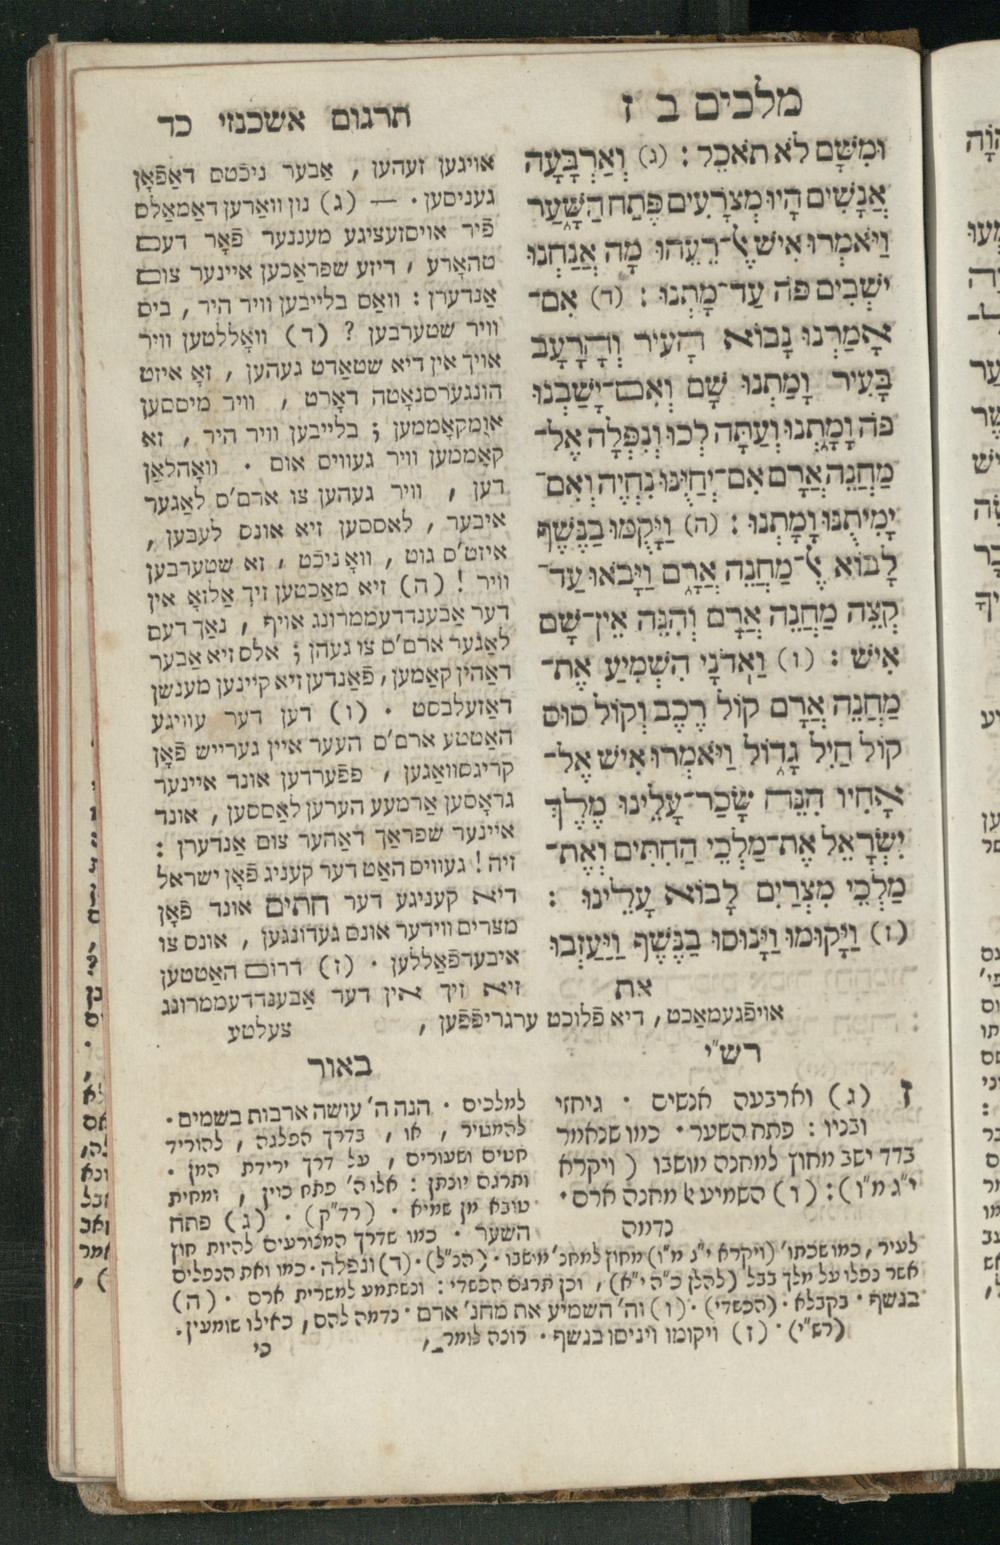 מלכים ב ז
תרגום אשכנזי כד
וּמִשָּׁם לֹא תֹאכֵל : (ג) וְאַרְבָּעָה
אֲנָשִׁים הָיוּ מְצֹרָעִים פֶּתַח הַשָּׁעַר
וַיֹּאמְרוּ אִישׁ אֶל־רֵעֵהוּ מָה אֲנַחְנוּ
יֹשְׁבִים פֹּה עַד־מָתְנוּ : (ד) אִם־
אָמַרְנוּ נָבוֹא הָעִיר וְהָרָעָב
בָּעִיר וָמַתְנוּ שָׁם וְאִם־יָשַׁבְנוּ
פֹה וָמָתְנוּ וְעַתָּה לְכוּ וְנִפְּלָה אֶל־
מַחֲנֵה אֲרָם אִם־יְחַיֻּנוּ נִחְיֶה וְאִם־
יְמִיתֻנוּ וָמָתְנוּ : (ה) וַיָּקֻמוּ בַנֶּשֶׁף
לָבוֹא אֶל־מַחֲנֵה אֲרָם וַיָּבֹאוּ עַד־
קְצֵה מַחֲנֵה אֲרָם וְהִנֵּה אֵין־שָׁם
אִישׁ : (ו) וַאדֹנָי הִשְׁמִיעַ אֶת־
מַחֲנֵה אֲרָם קוֹל רֶכֶב וְקוֹל סוּס
קוֹל חַיִל גָּדוֹל וַיֹּאמְרוּ אִישׁ אֶל־
אָחִיו הִנֵּה שָׂכַר־עָלֵינוּ מֶלֶךְ
יִשְׂרָאֵל אֶת־מַלְכֵי הַחִתִּים וְאֶת־
מַלְכֵי מִצְרַיִם לָבוֹא עָלֵינוּ :
(ז) וַיָּקוּמוּ וַיָּנוּסוּ בַנֶּשֶׁף וַיַּעַזְבוּ
את
אויגען זעהען , אַבער ניכֿטס דאַפֿאָן
געניסען · — (ג) נון וואַרען דאַמאַלס
פֿיר אויסזעציגע מעננער פֿאָר דעם
טהאָרע , דיזע שפראַכען איינער צום
אַנדערן : וואַס בלייבען וויר היר , ביס
וויר שטערבען ? (ד) וואָללטען וויר
אויך אין דיא שטאַדט געהען , זאָ איזט
הונגערסנאָטה דאָרט , וויר מיססען
אומקאָממען ; בלייבען וויר היר , זא
קאָממען וויר געווים אום · וואָהלאַן
דען , וויר געהען צו ארם'ס לאַגער
איבער , לאססען זיא אונס לעבען ,
איזט'ס גוט , וואָ ניכֿט , זא שטערבען
וויר ! (ה) זיא מאַכטען זיך אַלזאָ אין
דער אַבענדדעממרונג אויף , נאַך דעם
לאַגער ארם'ס צו געהן ; אלס זיא אַבער
דאַהין קאַמען , פֿאַנדען זיא קיינען מענשן
דאַזעלבסט · (ו) דען דער עוויגע
האַטטע ארם'ס העער איין גערייש פֿאָן
קריגסוואַגען , פפֿערדען אונד איינער
גראָסען אַרמעע הערען לאַססען , אונד
איינער שפראַך דאַהער צום אַנדערן :
זיה ! געוויס האַט דער קעניג פֿאָן ישראל
דיא קעניגע דער חתים אונד פֿאָן
מצרים ווידער אונס געדונגען , אונס צו
איבערפֿאַללען · (ז) דרום האַטטען
זיא זיך אין דער אַבענדדעממרונג
אויפֿגעמאַכט, דיא פֿלוכט ערגריפֿפֿען , צעלטע
רש"י
ז (ג) וארבעה אנשים · גיחזי
ובניו : פתח השער · כמו שנאמר
בדד ישב מחוץ למחנה מושבו (ויקרא
י"ג מ"ו) : (ו) השמיע את מחנה ארם ·
כדמה
באור
למלכים · הנה ה' עושה ארבות בשמים ·
להמטיר , או , בדרך הפלגה , להוריד
חטים ושעורים , על דרך ירידת המן ·
ותרגם יונתן : אלו ה' פתח כוין , ומחית
טובא מן שמיא · (רד"ק) · (ג) פתח
השער · כמו שדרך המצורעים להיות חוץ
לעיר , כמו שכתו' (ויקרא י"ג מ"ו) מחוץ למחנ' מושבו · (הנ"ל) · (ד) ונפלה · כמו ואת הנפלים
אשר נפלו על מלך בבל (להלן כ"ה י"א) , וכן תרגם הכשדי : ונשתמע למשרית ארם · (ה)
בנשף · בקבלא · (הכשדי) · (ו) וה' השמיע את מחנ' ארם · נדמה להם , כאילו שומעין ·
(רש"י) · (ז) ויקומו וינוסו בנשף · רוצה לומר ,
כי